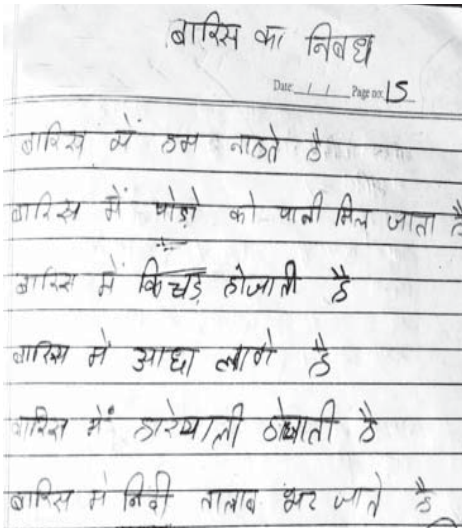 बारिस का निबध
Date / / Page no: 15
बारिस में हम नाहते है
बारिस में पोड़ो को पानी मिल जाता है
बारिस में किचड़ होजाती है
बारिस में आधा लागे है
बारिस में हारेयाली होजाती है
बारिस मे निदी तालाब भर जाते है